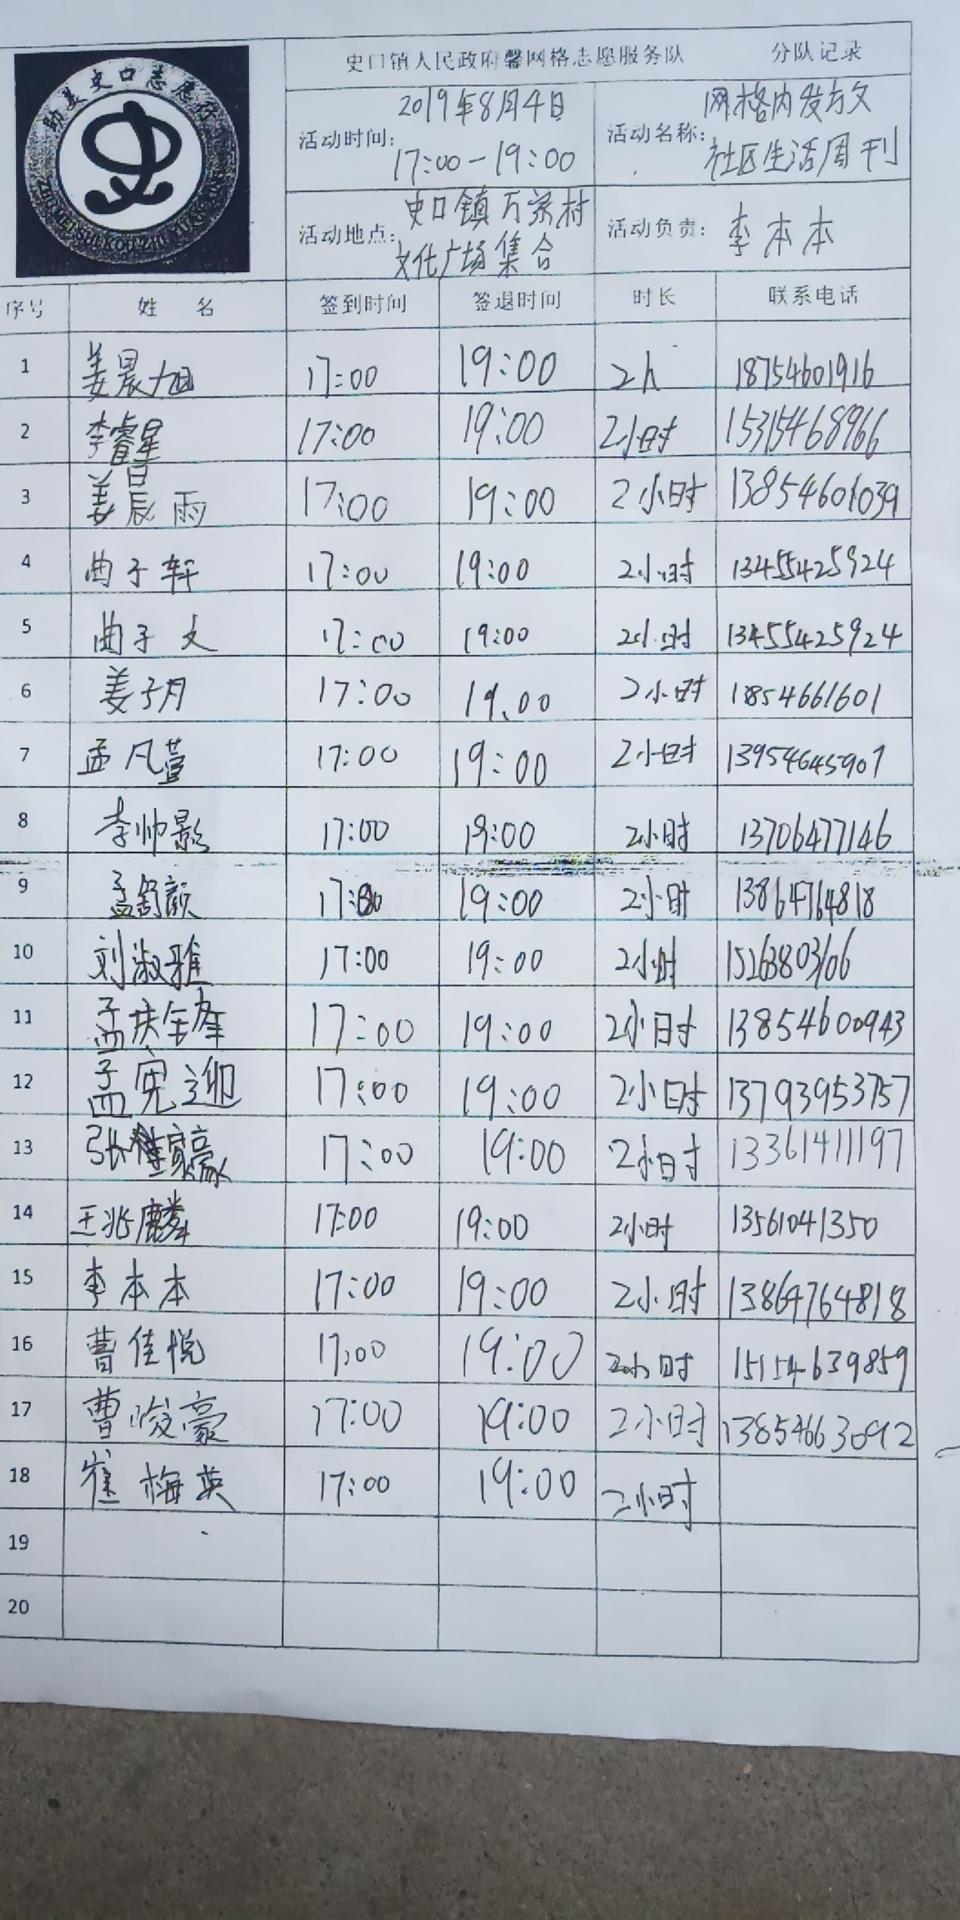 助美史口志愿行
史口镇人民政府馨网格志愿服务队 分队记录
活动时间： 2019年8月4日
17:00-19:00
活动名称： 网格内发放
社区生活周刊
活动地点： 史口镇万家村
文化广场集合
活动负责： 李本本
序号 姓 名 签到时间 签退时间 时长 联系电话
1 姜晨旭 17:00 19:00 2h 18754601916
2 李睿星 17:00 19:00 2小时 15315468966
3 姜晨雨 17:00 19:00 2小时 13854601039
4 曲子轩 17:00 19:00 2小时 13455425924
5 曲子文 17:00 19:00 2小时 13455425924
6 姜子月 17:00 19.00 2小时 1854661601
7 孟凡萱 17:00 19:00 2小时 13954645907
8 李帅影 17:00 19:00 2小时 13706477146
9 孟舒颜 17:00 19:00 2小时 13864764818
10 刘淑雅 17:00 19:00 2小时 15263803106
11 孟庆 17:00 19:00 2小时 13854600943
12 孟宪迎 17:00 19:00 2小时 13793953757
13 张家豪 17:00 19:00 2小时 13361411197
14 王兆麟 17:00 19:00 2小时 13561041350
15 李本本 17:00 19:00 2小时 13864764818
16 曹佳悦 17:00 19:00 2小时 15154639859
17 曹峻豪 17:00 19:00 2小时 13854663092
18 崔梅英 17:00 19:00 2小时
19
20